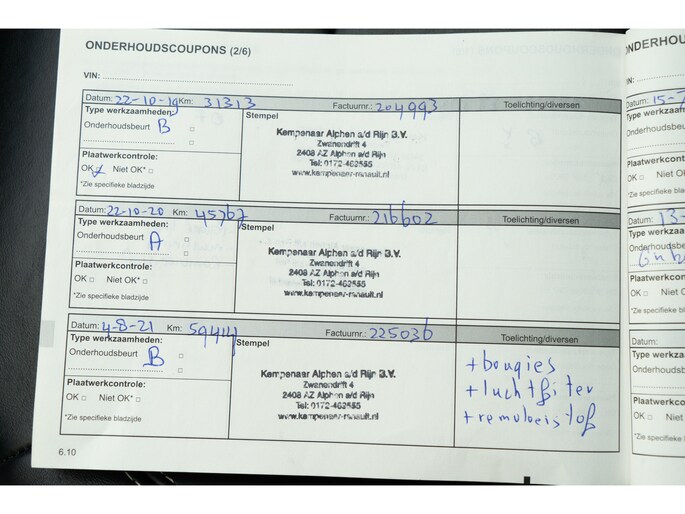 ONDERHOUDSCOUPONS (2/6)
VIN:
Datum: 22-10-19 Km: 31313 Factuurnr.: 204993 Toelichting/diversen
Type werkzaamheden:
Onderhoudsbeurt B
Stempel
Kempenaar Alphen a/d Rijn B.V.
Zwanendrift 4
2408 AZ Alphen a/d Rijn
Tel: 0172-462555
www.kempenaer-renault.nl
Plaatwerkcontrole:
OK Niet OK*
*Zie specifieke bladzijde
Datum: 22-10-20 Km: 45767 Factuurnr.: 216602 Toelichting/diversen
Type werkzaamheden:
Onderhoudsbeurt A
Stempel
Kempenaar Alphen a/d Rijn B.V.
Zwanendrift 4
2408 AZ Alphen a/d Rijn
Tel: 0172-462555
www.kempenaer-renault.nl
Plaatwerkcontrole:
OK Niet OK*
*Zie specifieke bladzijde
Datum: 4-8-21 Km: 59414 Factuurnr.: 225036 Toelichting/diversen
Type werkzaamheden:
Onderhoudsbeurt B
Stempel
Kempenaar Alphen a/d Rijn B.V.
Zwanendrift 4
2408 AZ Alphen a/d Rijn
Tel: 0172-462555
www.kempenaer-renault.nl
Plaatwerkcontrole:
OK Niet OK*
*Zie specifieke bladzijde
+bougies
+luchtfilter
+remvloeistof
6.10
Datum: 15-
Onderhoudsbeurt
OK Niet
*Zie specifieke
Datum: 13-
OK Niet
*Zie specifieke
Datum:
OK Niet
*Zie specifieke